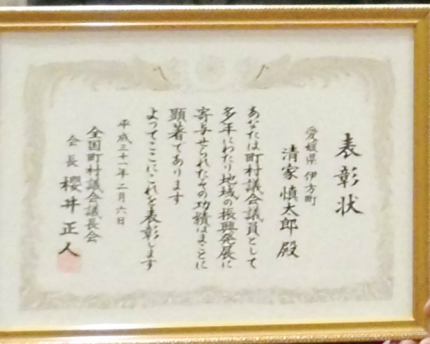 表彰状
愛媛県 伊方町
清家慎太郎 殿
あなたは町村議会議員として
多年にわたり地域の振興発展に
寄与せられたその功績はまことに
顕著であります
よってここにこれを表彰します
平成三十一年二月六日
全国町村議会議長会
会長 櫻井正人